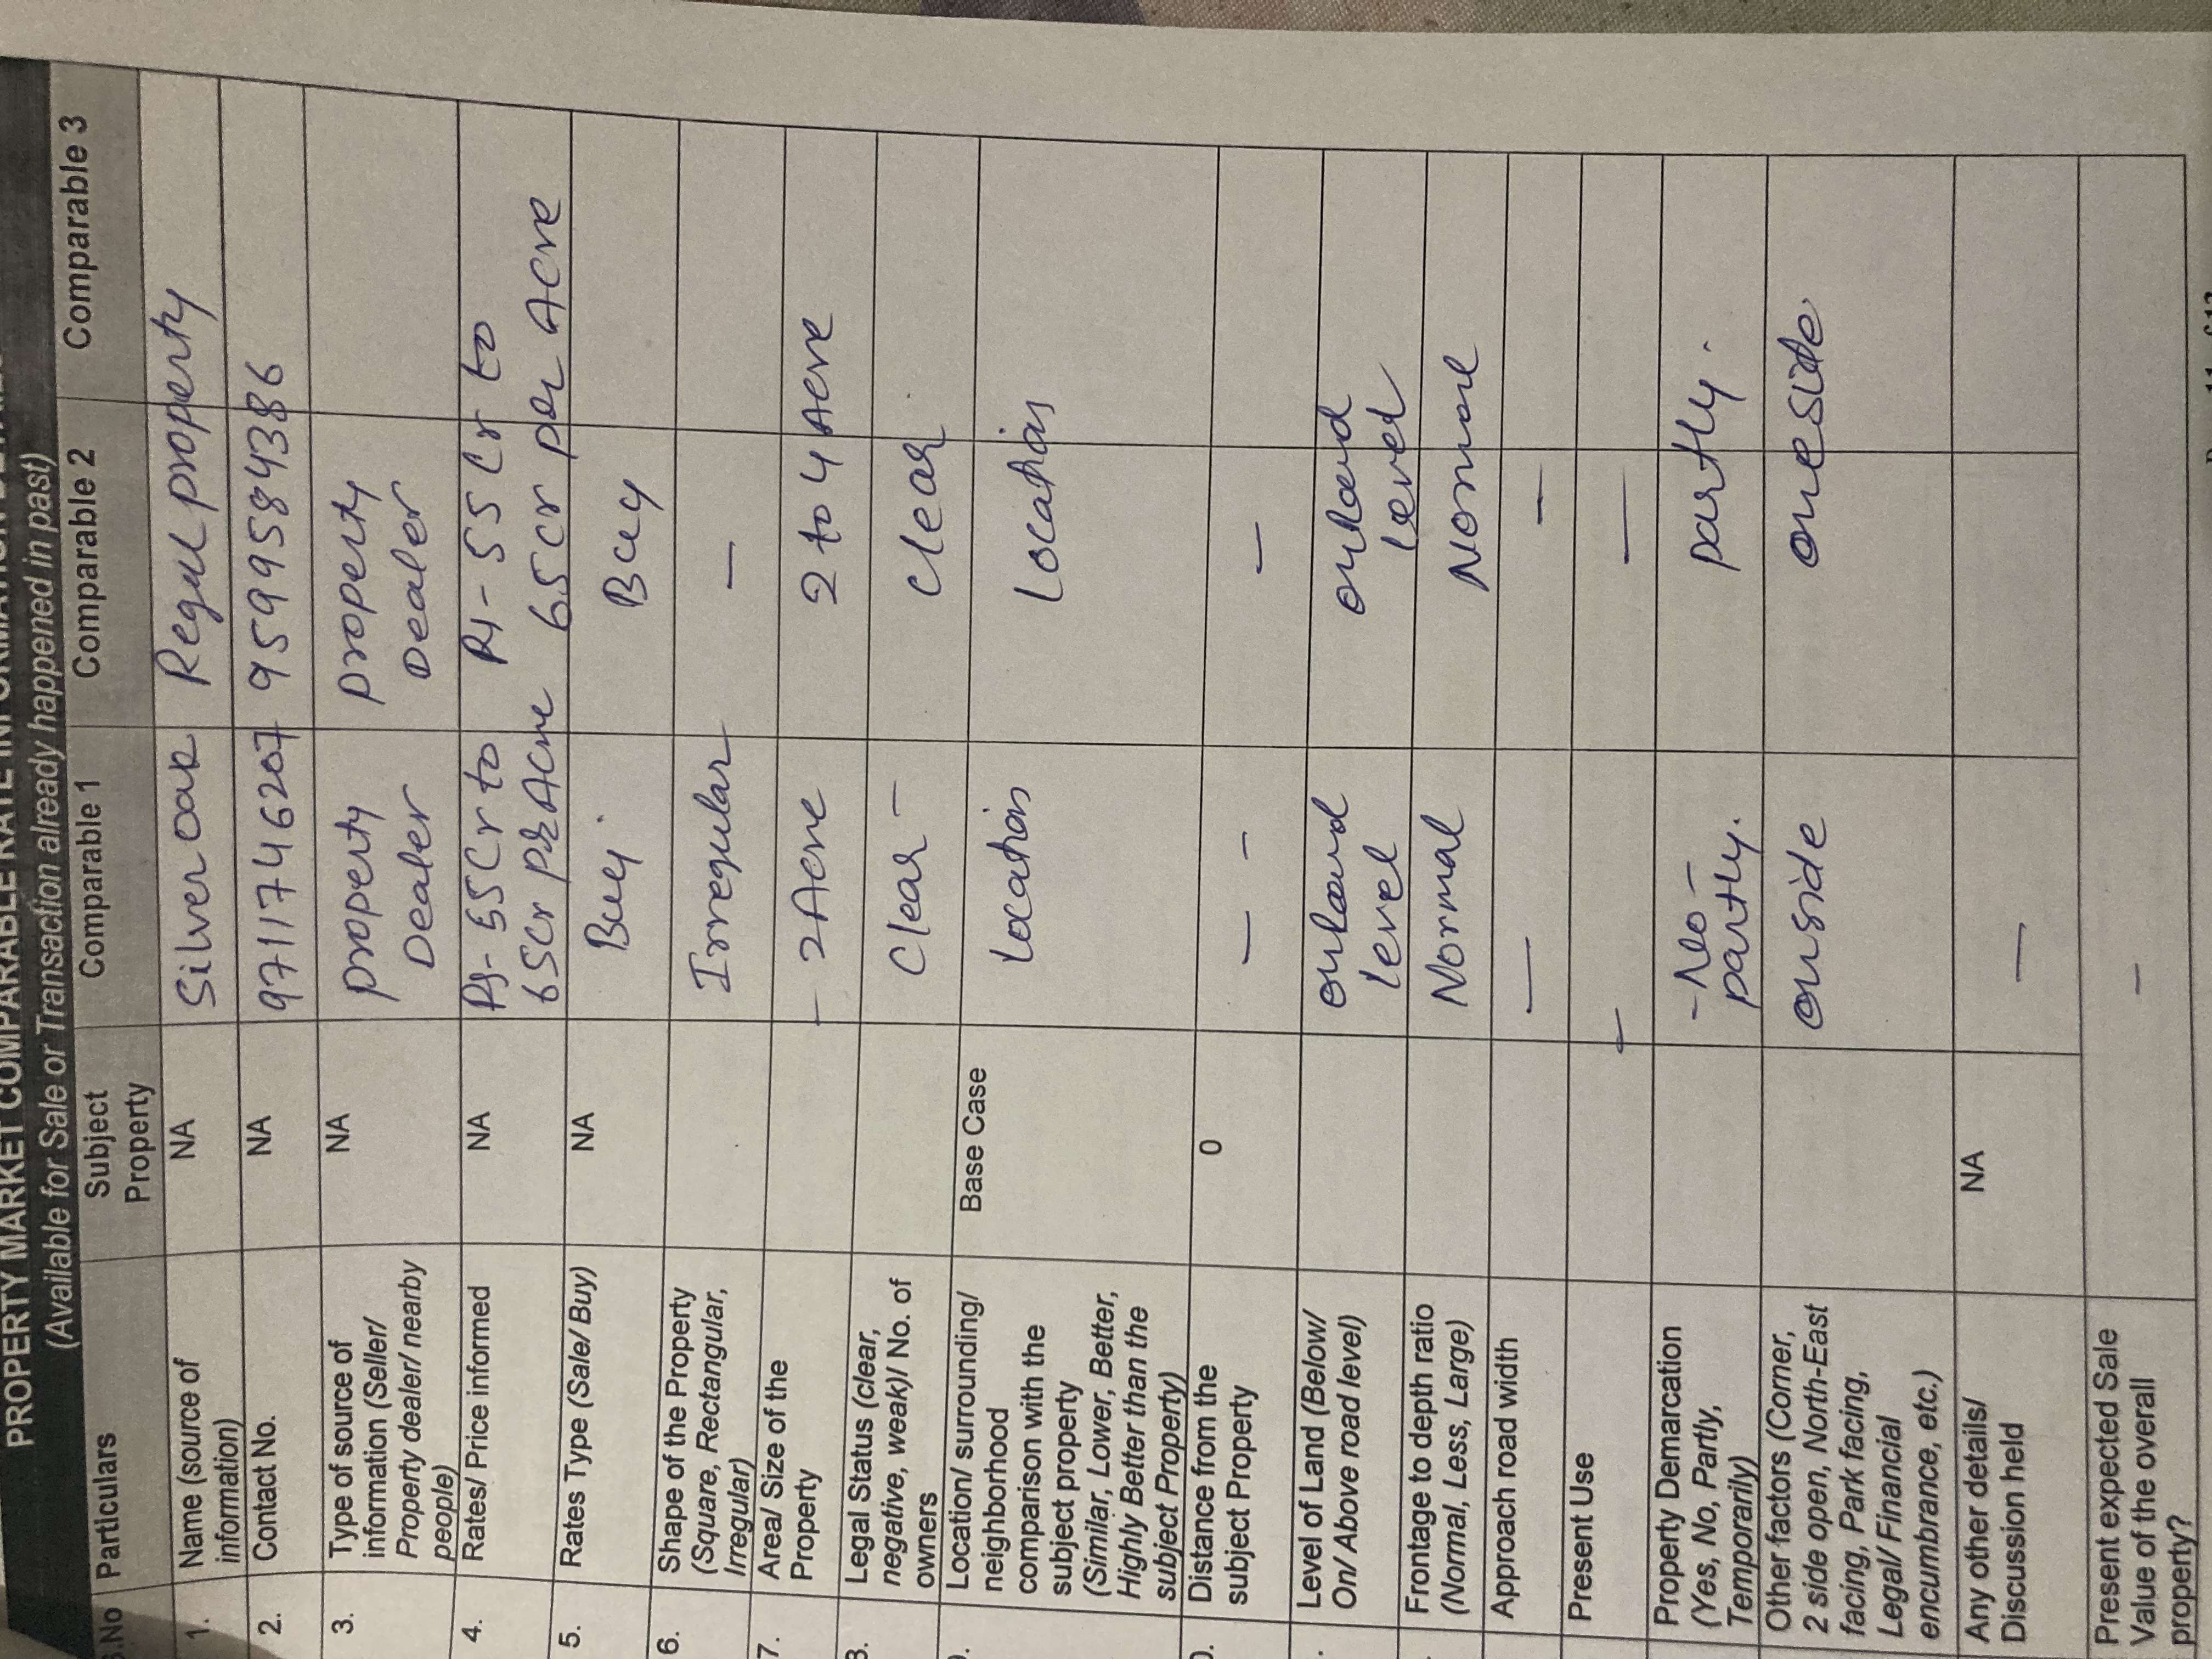 (Available for Sale or Transaction already happened in past)
S.No Particulars Subject Property Comparable 1 Comparable 2 Comparable 3
1. Name (source of information) NA Silver oak Regul property
2. Contact No. NA 9711746207 9599584386
3. Type of source of information (Seller/ Property dealer/ nearby people) NA property Dealer property Dealer
4. Rates/ Price informed NA Rs- 55 Cr to 65 Cr per Acre Rs- 55 Cr to 65 Cr per Acre
5. Rates Type (Sale/ Buy) NA Buy. Buy
6. Shape of the Property (Square, Rectangular, Irregular) Irregular —
7. Area/ Size of the Property - 2 Acre 2 to 4 Acre
8. Legal Status (clear, negative, weak)/ No. of owners Clear - Clear
Location/ surrounding/ neighborhood comparison with the subject property (Similar, Lower, Better, Highly Better than the subject Property) Base Case Location Location
Distance from the subject Property 0 — - —
Level of Land (Below/ On/ Above road level) level level
Frontage to depth ratio (Normal, Less, Large) Normal Normal
Approach road width — —
Present Use — —
Property Demarcation (Yes, No, Partly, Temporarily) - No - partly. partly.
Other factors (Corner, 2 side open, North-East facing, Park facing, Legal/ Financial encumbrance, etc.) onside oneside
Any other details/ Discussion held NA —
Present expected Sale Value of the overall property? —